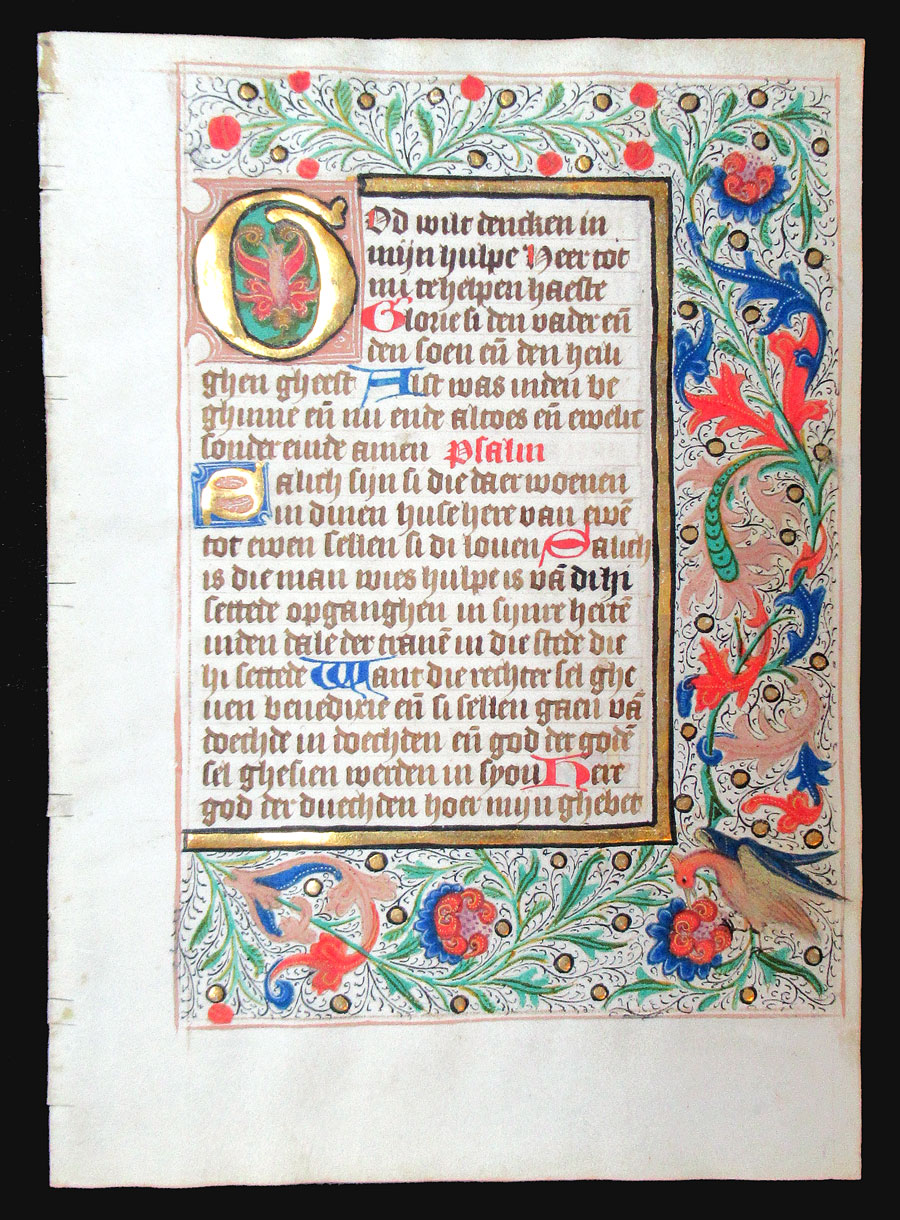 God wilt dencken in
mijn hulpe Heer tot
mi te helpen haeste
Glorie si den vader eñ
den soen eñ den heili
ghen gheest Alst was inden be
ghinne eñ nu ende altoes eñ ewelic
sonder einde amen Psalm
Salich sijn si die daer woenen
in dinen huse here van ewē
tot ewen sellen si di louen Salich
is die man wies hulpe is vā di hi
settede opganghen in sijnre hertē
inden dale der tranē in die stede die
hi settede Want die rechter sel ghe
uen benedixie eñ si sellen gaen vā
doechde in doechden eñ god der godē
sel ghesien werden in syon Here
god der duechden hoer mijn ghebet